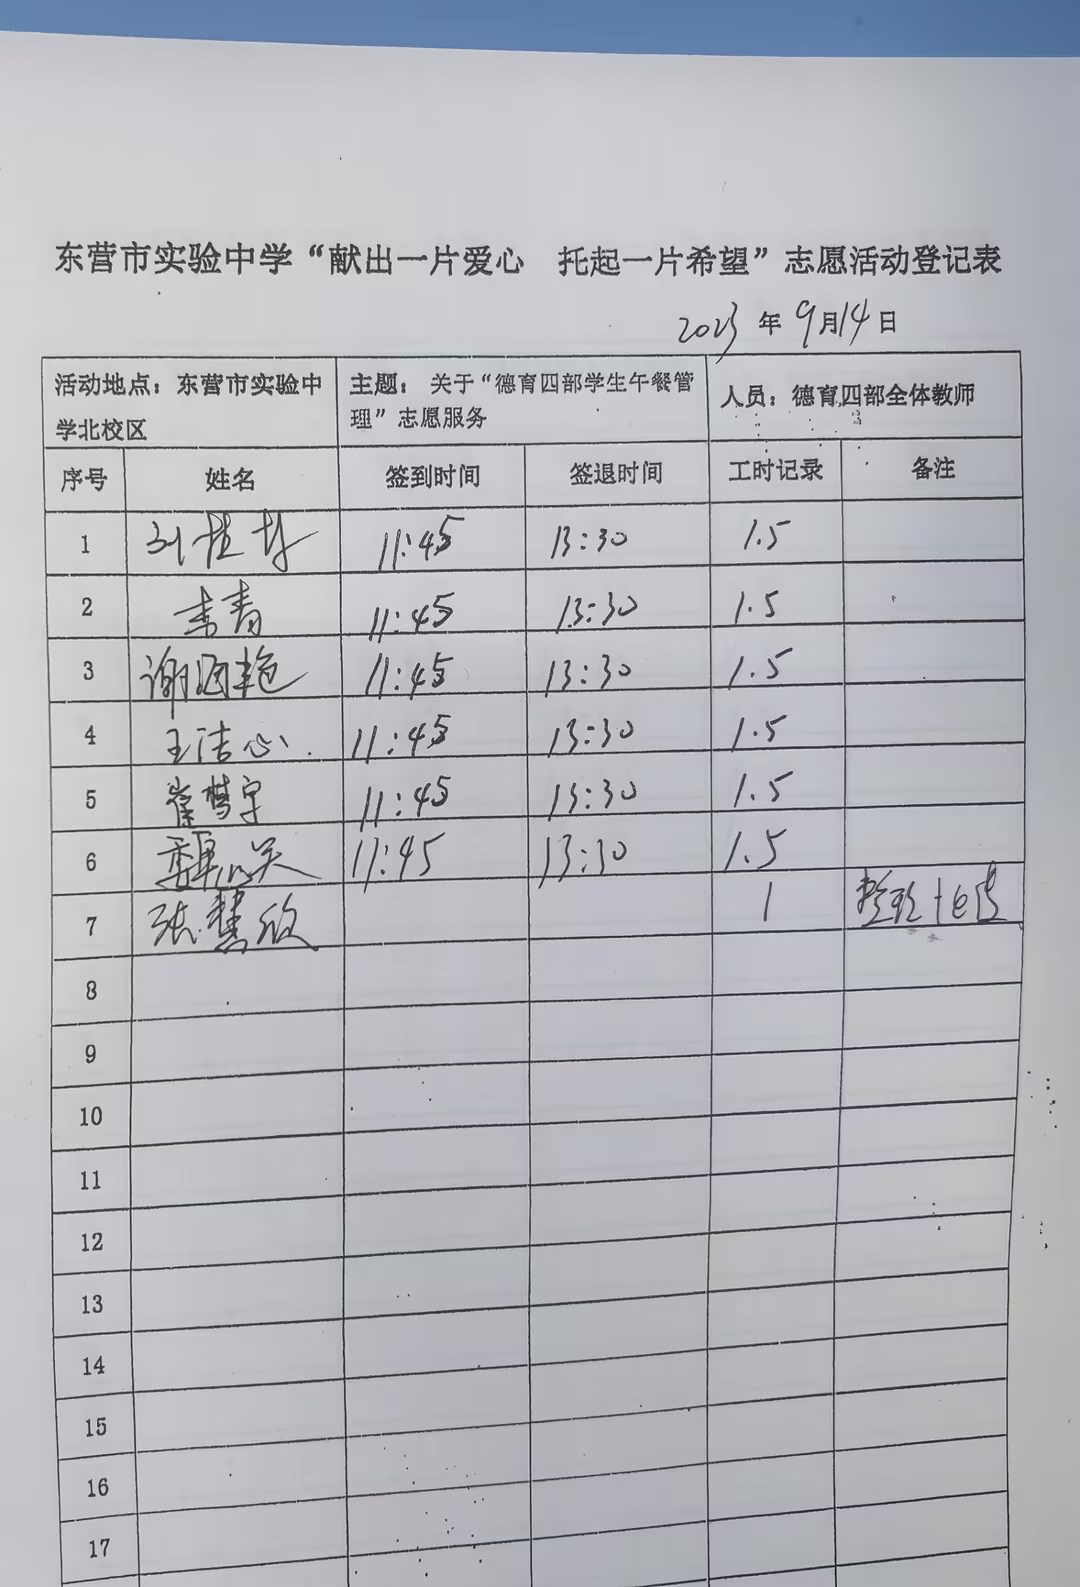 东营市实验中学“献出一片爱心 托起一片希望”志愿活动登记表
2023年9月14日
活动地点：东营市实验中
学北校区
主题：关于“德育四部学生午餐管
理”志愿服务
人员：德育四部全体教师
序号 姓名 签到时间 签退时间 工时记录 备注
1 11:45 13:30 1.5
2 李青 11:45 13:30 1.5
3 谢 艳 11:45 13:30 1.5
4 王洁心 11:45 13:30 1.5
5 崔梦宇 11:45 13:30 1.5
6 11:45 13:30 1.5
7 张慧欣 1
8
9
10
11
12
13
14
15
16
17